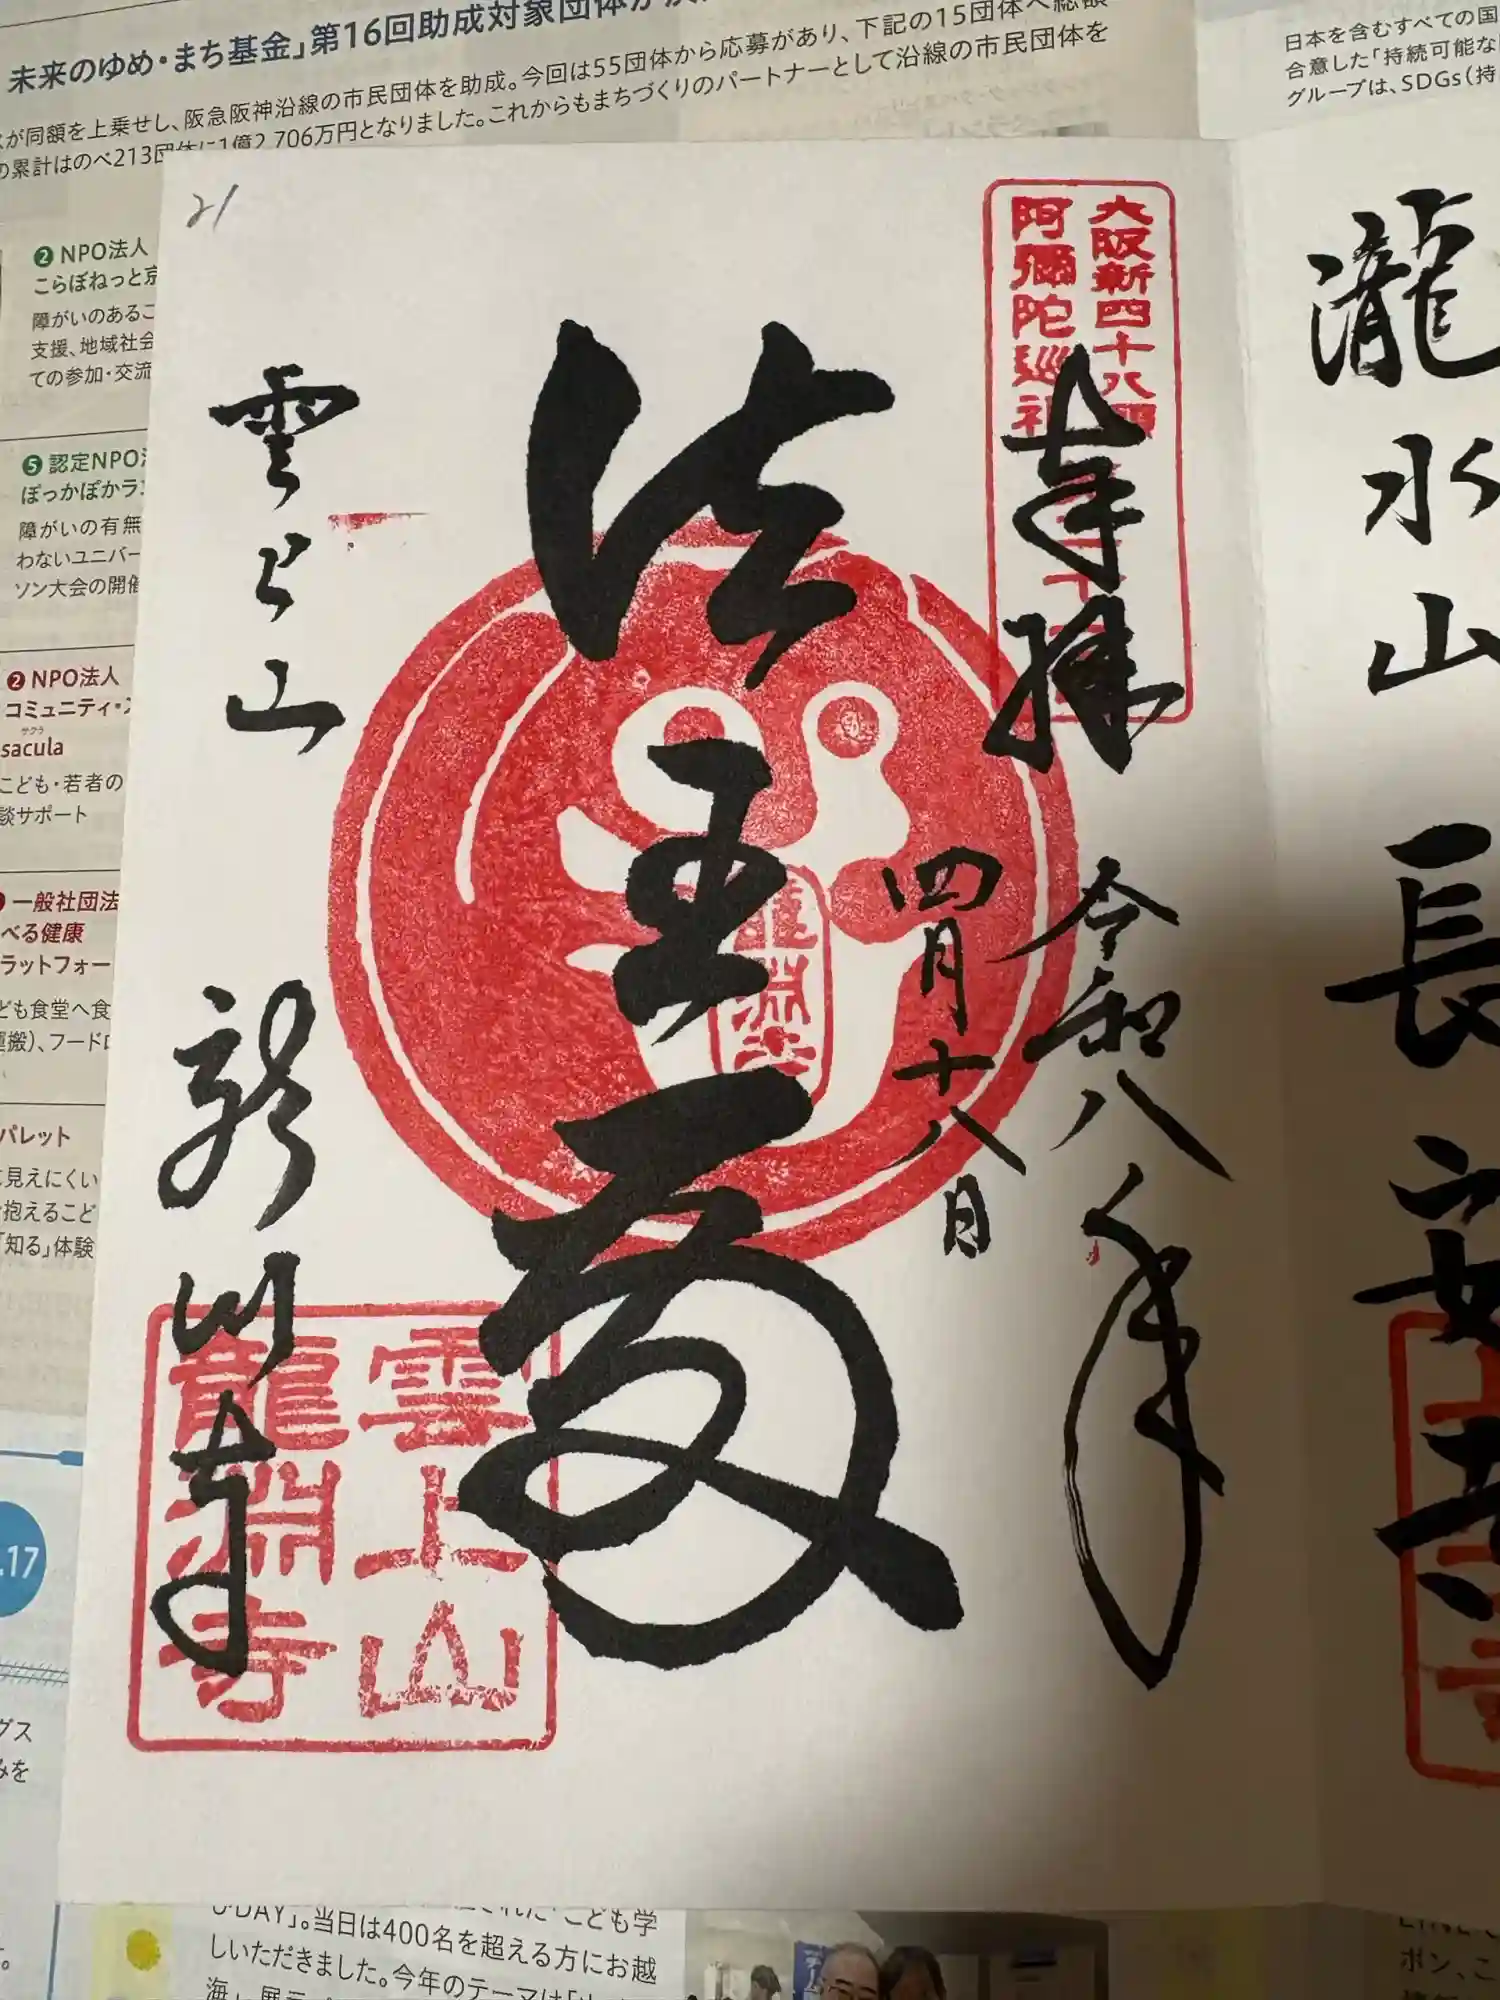 未来のゆめ・まち基金」第16回助成対象団体が
が同額を上乗せし、阪急阪神沿線の市民団体を助成。今回は55団体から応募があり、下記の15団体へ総額
の累計はのべ213団体に1億2,706万円となりました。これからもまちづくりのパートナーとして沿線の市民団体を
日本を含むすべての国
合意した「持続可能な
グループは、SDGs(持
❷ NPO法人
こらぼねっと京
障がいのあるこ
支援、地域社会
ての参加・交流
❺ 認定NPO法
ぽっかぽかラン
障がいの有無
わないユニバー
ソン大会の開催
❷ NPO法人
コミュニティ・ス
サクラ
sacula
こども・若者の
談サポート
一般社団法
べる健康
ラットフォー
ども食堂へ食
運搬)、フードロ
パレット
に見えにくい
抱えるこど
「知る」体験
.17
グス
みを
21
大阪新四十八願
阿彌陀巡礼
奉拝
令和八年
四月十八日
法王殿
龍淵
雲上山
龍渕寺
雲上山
龍淵寺
瀧水山
長安寺
U-DAY」。当日は400名を超える方にお越
しいただきました。今年のテーマは
こども学
ボン、こ